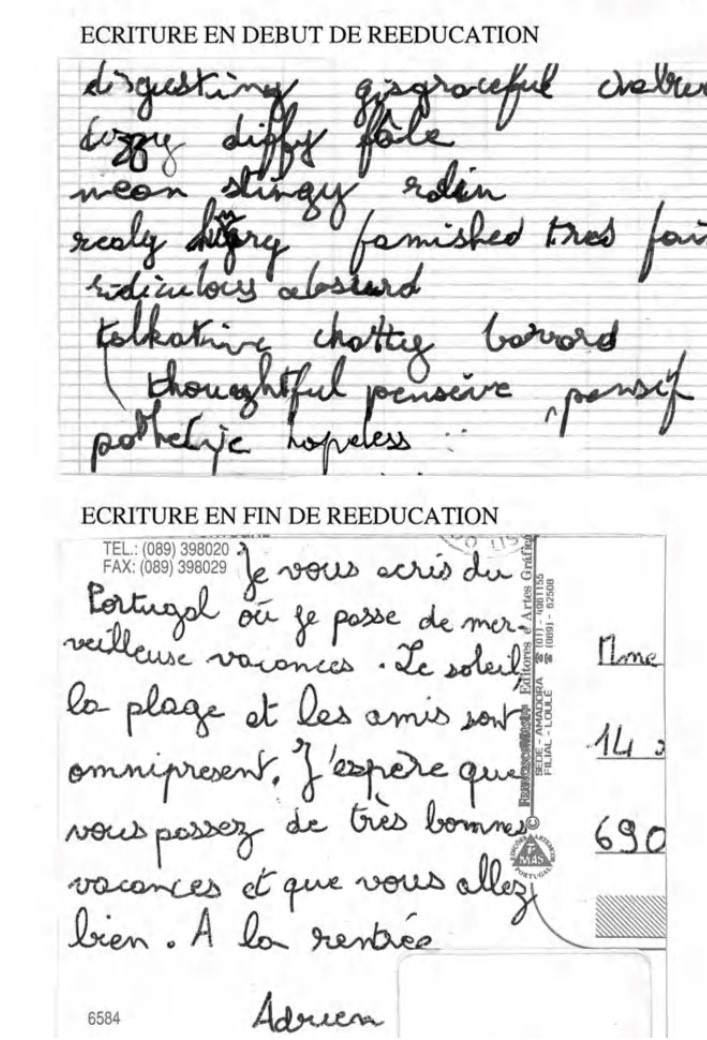 ECRITURE EN DEBUT DE REEDUCATION
disgusting disgraceful
dizzy diffy pâle
mean stingy radin
realy hungry famished tres
ridiculous absurd
talkative chatty bavard
thoughtful pensive pensif
pathetic hopeless
ECRITURE EN FIN DE REEDUCATION
TEL.: (089) 398020
FAX: (089) 398029
Je vous ecris du
Portugal où je passe de mer-
veilleuse vacances. Le soleil,
la plage et les amis sont
omnipresent. J'espère que
vous passez de très bonnes
vacances et que vous allez
bien. A la rentrée
Adrien
6584
Editores e Artes Gráficas
SEDE - AMADORA ☎ (01) - 4981155
FILIAL - LOULÉ ☎ (089) - 62508
MAS
PORTUGAL
Mme
14
690